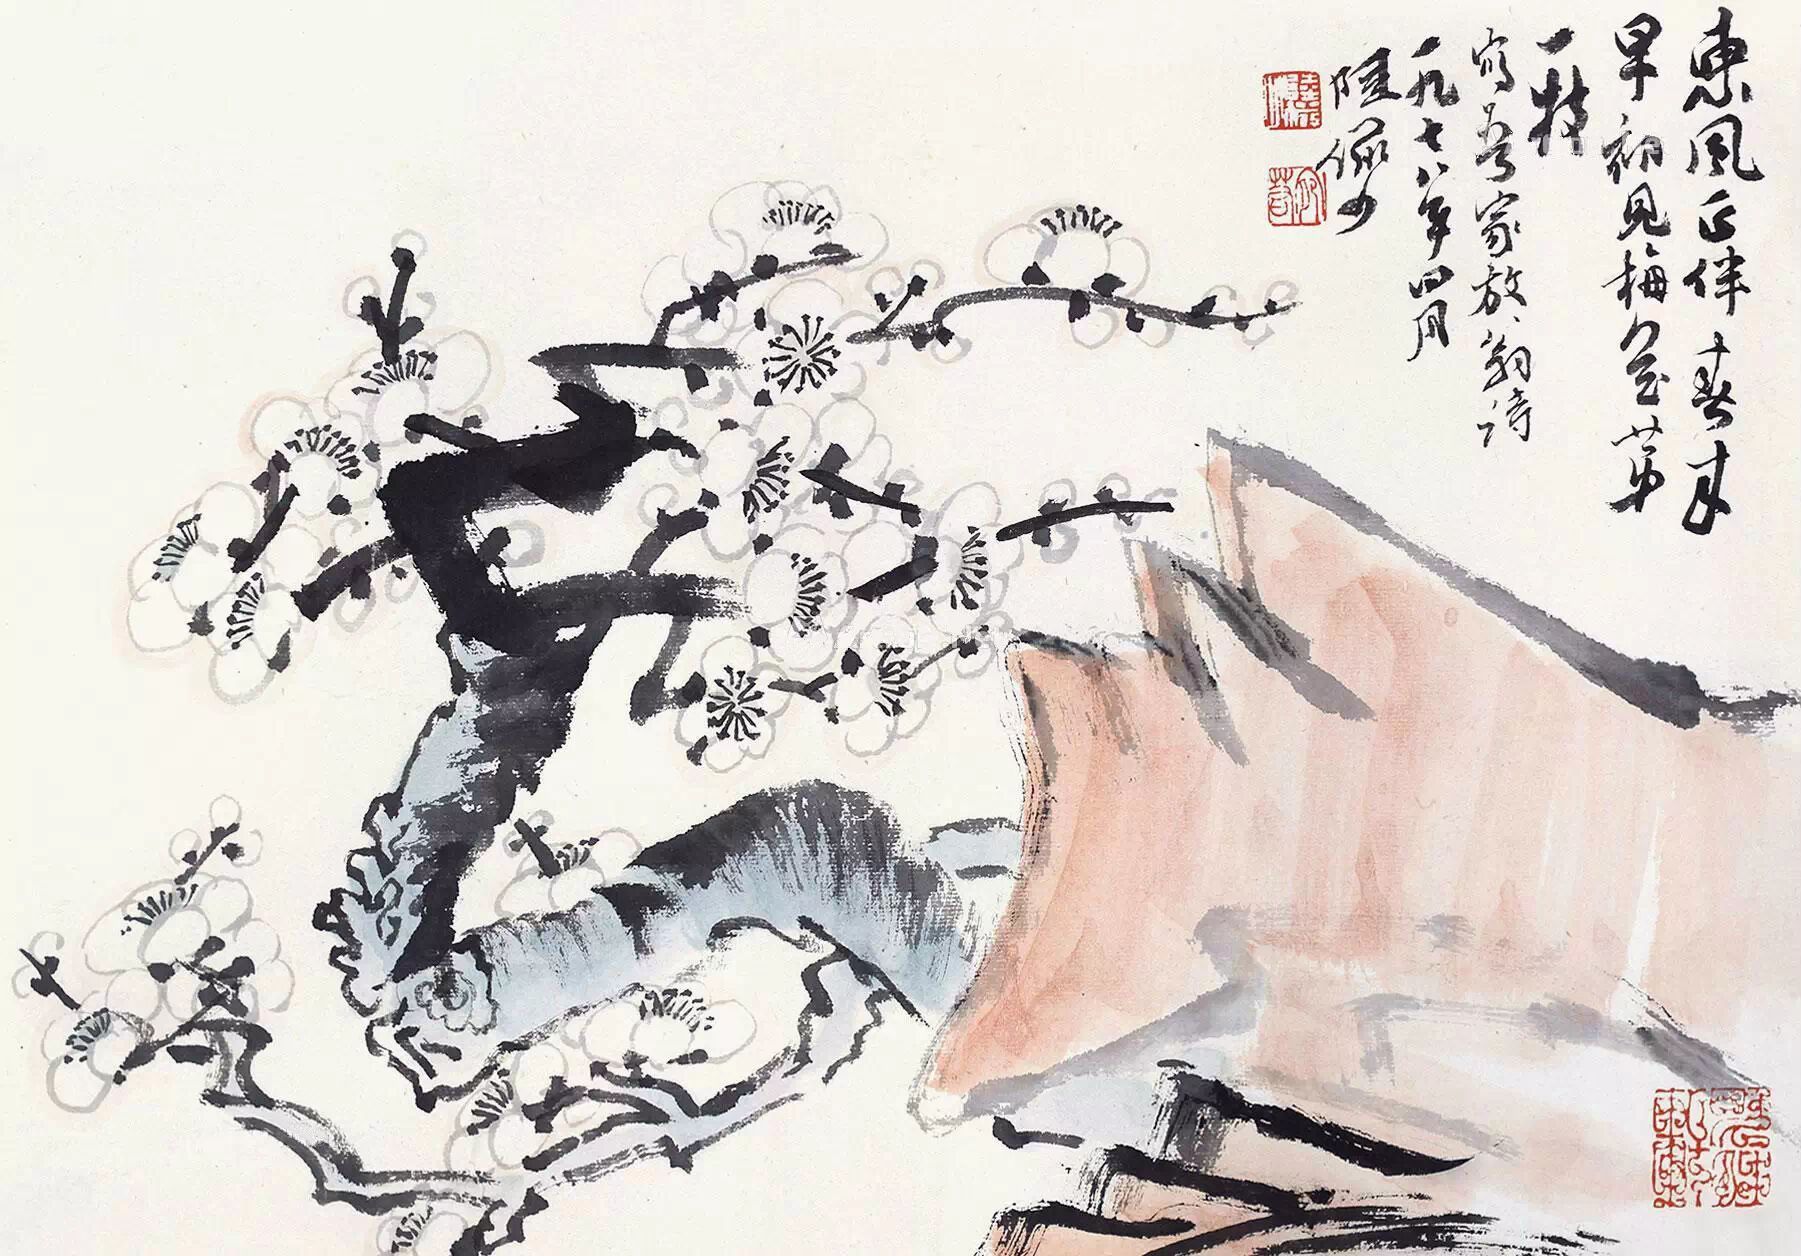 東風正伴春來
早初見梅花苐
一枝
寫吾家放翁詩
一九七八年四月
陸儼少
陸儼
宛若